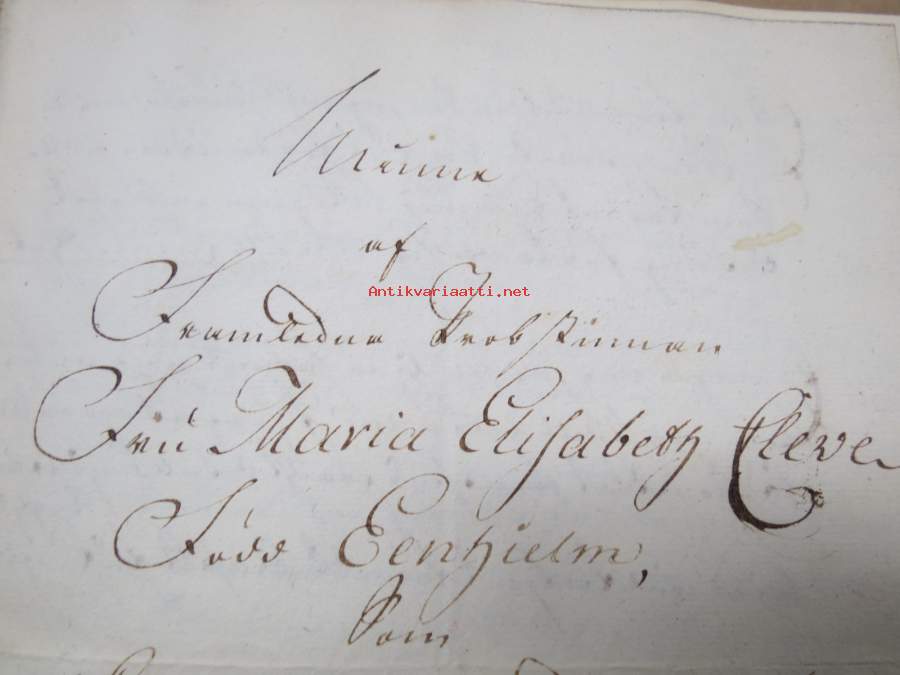 Minne
af
Antikvariaatti.net
Framledne Probstinnan
Fru Maria Elisabeth Cleve
Född Eenhielm,
Som